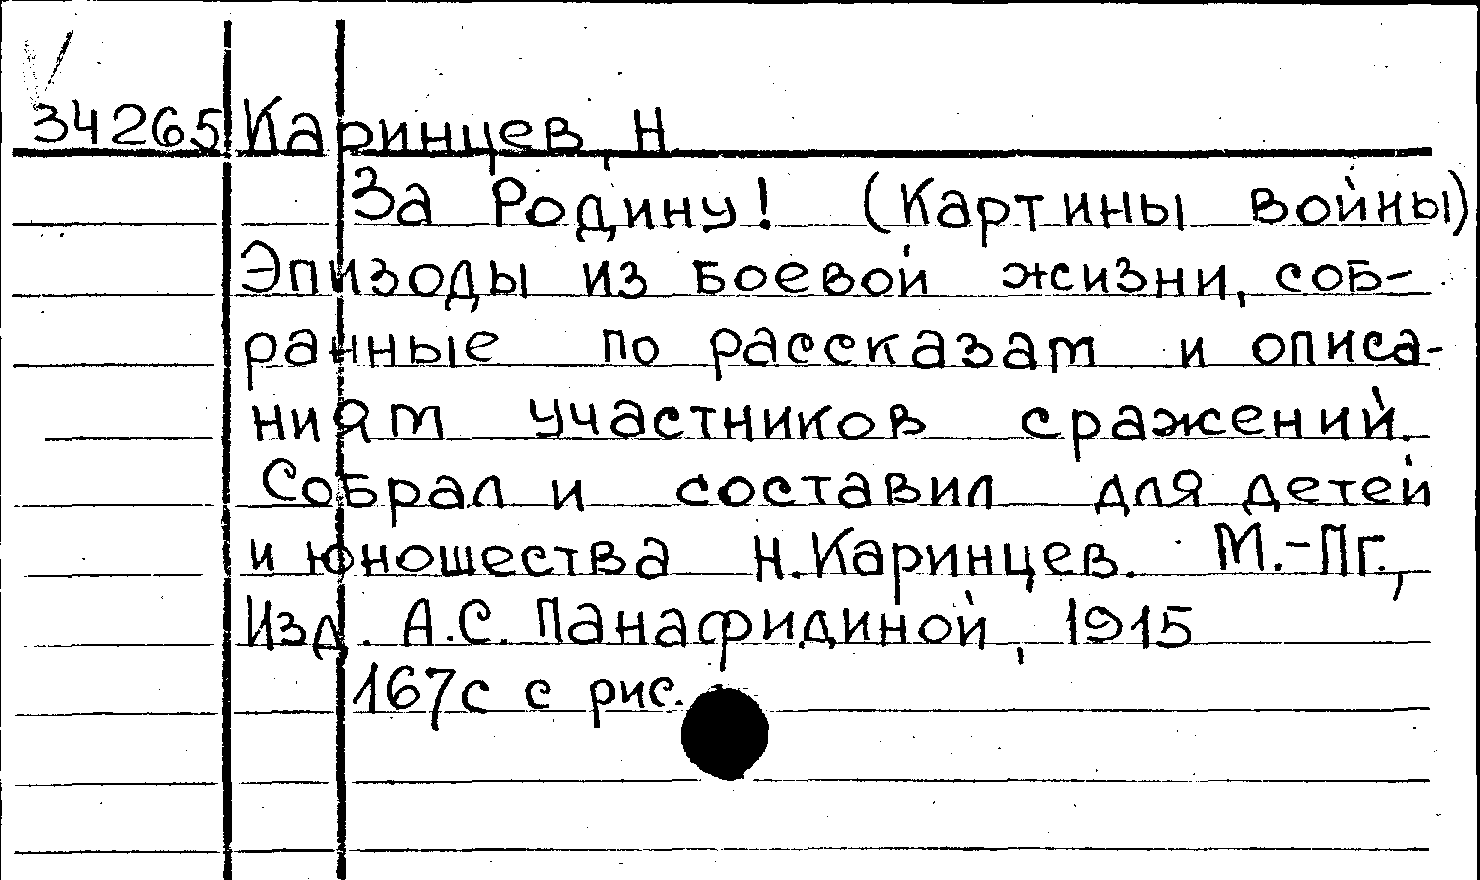 34265 Каринцев, Н
За Родину! (Картины войны)
Эпизоды из боевой жизни, соб-
ранные по рассказам и описа-
ниям участников сражений.
Собрал и составил для детей
и юношества Н. Каринцев. М.-Пг.,
Изд. А.С. Панафидиной, 1915
167с с рис.